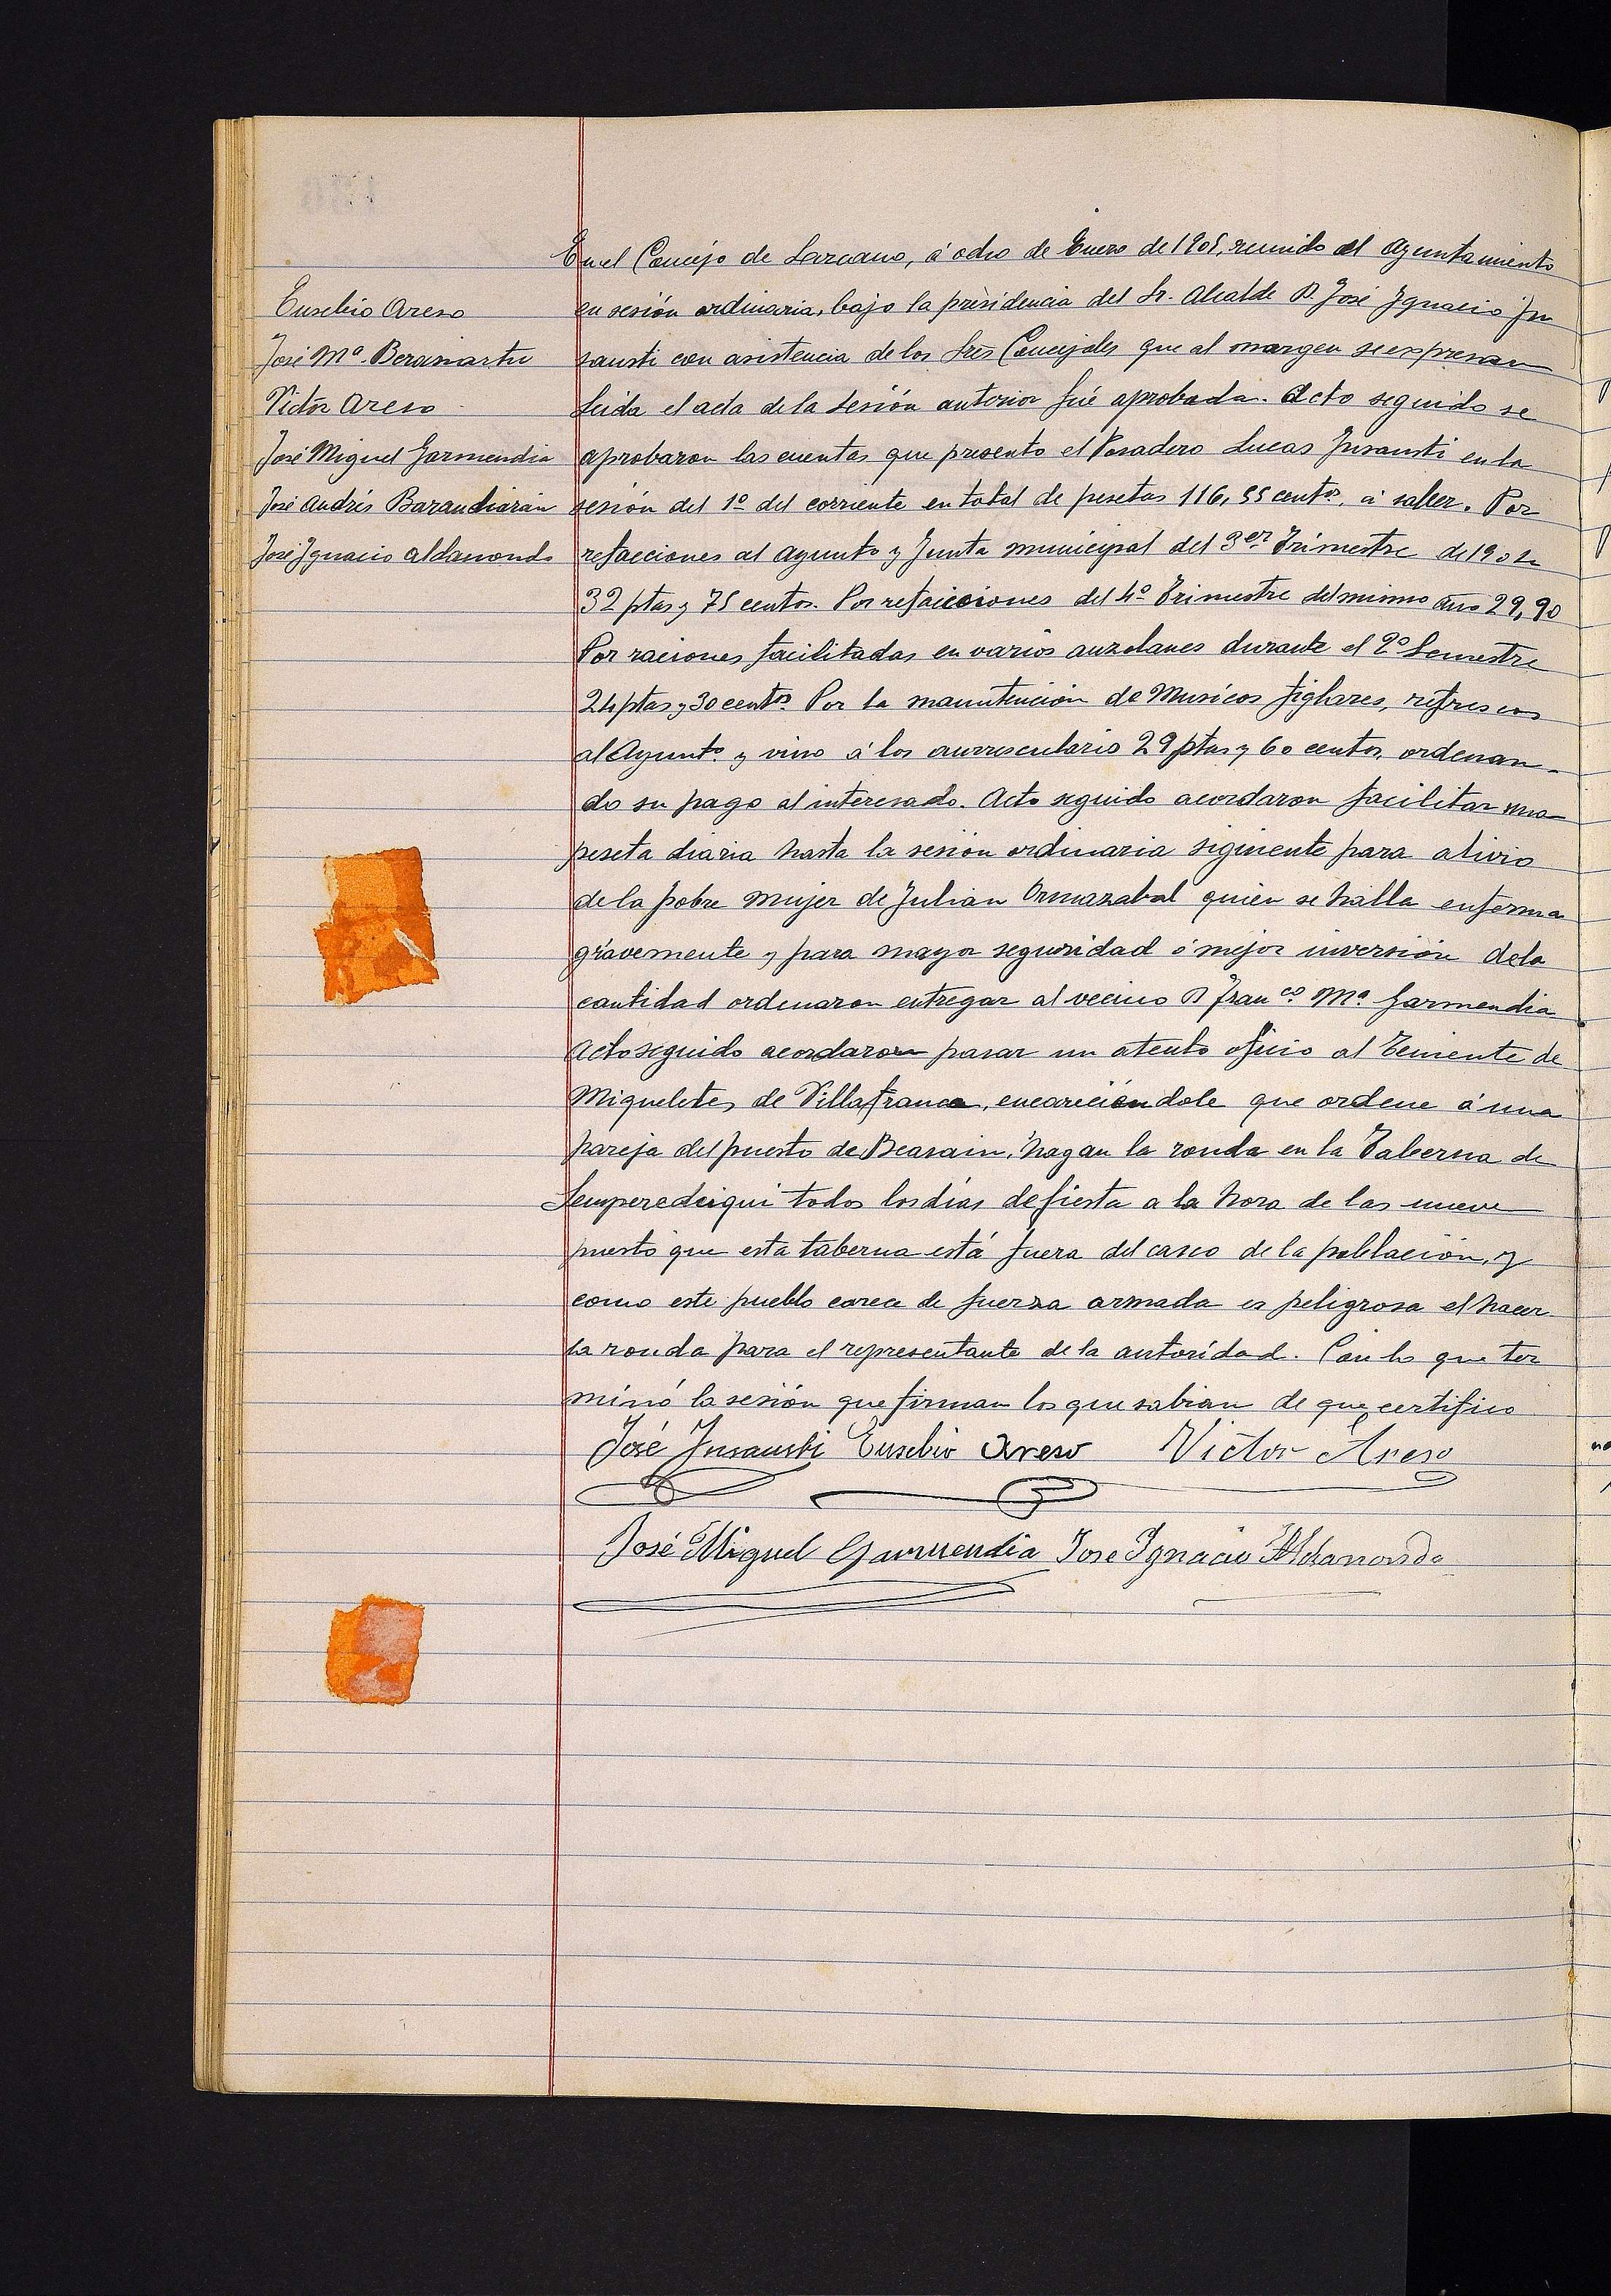 En el Concejo de Lazcano, á ocho de Enero de 1905, reunido el Ayuntamiento
en sesión ordinaria, bajo la presidencia del Sr. Alcalde D. José Ygnacio Yn
sausti con asistencia de los Sres Concejales que al margen se expresan
Leida el acta de la sesión anterior fué aprobada. Acto seguido se
aprobaron las cuentas que presento el Posadero Lucas Ynsausti en la
sesión del 1º del corriente en total de pesetas 116,55 centº, á saber. Por
refacciones al Ayunto y Junta municipal del 3er Trimestre de 1904
32 ptas y 75 centos. Por refaicciones del 4º Trimestre del mismo año 29,90
Por raciones facilitadas en varios auzolanes durante el 2º Semestre
24 ptas y 30 centos. Por la manutención de Musicos jighares, refrescos
al Ayunto. y vino á los aurresculario 29 ptas y 60 centos, ordenan-
do su pago al interesado. Acto seguido acordaron facilitar una
peseta diaria hasta la sesión ordinaria siguiente para alivio
de la pobre mujer de Julian Ormazabal quien se halla enferma
grávemente y para mayor seguridad ó mejor inversión de la
cantidad ordenaron entregar al vecino D Franco Mª Garmendia
Acto seguido acordaron pasar un atento oficio al Teniente de
Migueletes de Villafranca, encareciéndole que ordene á una
pareja del puesto de Beasain, hagan la ronda en la Taberna de
Semperedeigui todos los dias de fiesta a la hora de las nueve
puesto que esta taberna está fuera del casco de la población, y
como este pueblo carece de fuerza armada es peligrosa el hacer
la ronda para el representante de la autoridad. Con lo que ter
minó la sesión que firman los que sabian de que certifico
José Ynsausti Eusebio Areso Victor Areso
José Miguel Garmendia Jose Ygnacio Aldanondo
Eusebio Areso
José Mª. Berasiartu
Victor Areso
José Miguel Garmendia
José Andrés Barandiarán
José Ygnacio Aldanondo